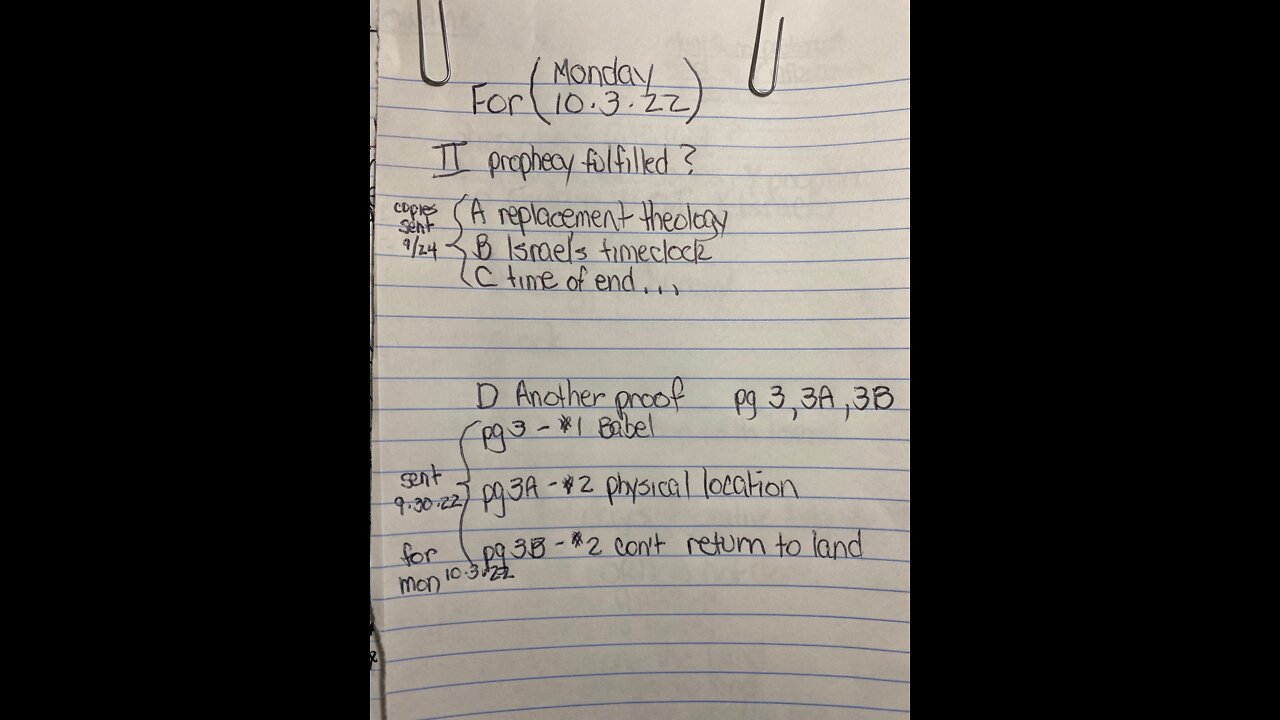 For (Monday
10.3.22)
II prophecy fulfilled?
copies sent 9/24
A replacement theology
B Israels timeclock
C time of end...
D Another proof pg 3, 3A, 3B
sent 9.30.22 for mon 10.3.22
pg 3 - *1 Babel
pg 3A - *2 physical location
pg 3B - *2 con't return to land